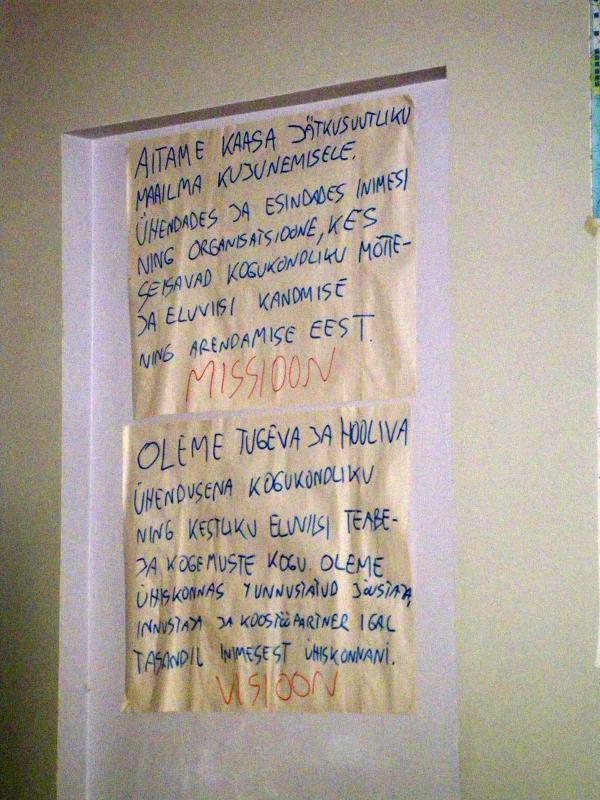 AITAME KAASA JÄTKUSUUTLIKU
MAAILMA KUJUNEMISELE.
ÜHENDADES JA ESINDADES INIMESI
NING ORGANISATSIOONE, KES
SEISAVAD KOGUKONDLIKU MÕTTE-
JA ELUVIISI KANDMISE
NING ARENDAMISE EEST.
MISSIOON
OLEME TUGEVA JA HOOLIVA
ÜHENDUSENA KOGUKONDLIKU
NING KESTLIKU ELUVIISI TEABE-
JA KOGEMUSTE KOGU. OLEME
ÜHISKONNAS TUNNUSTATUD JÕUSTAJA,
INNUSTAJA JA KOOSTÖÖPARTNER IGAL
TASANDIL INIMESEST ÜHISKONNANI.
VISIOON